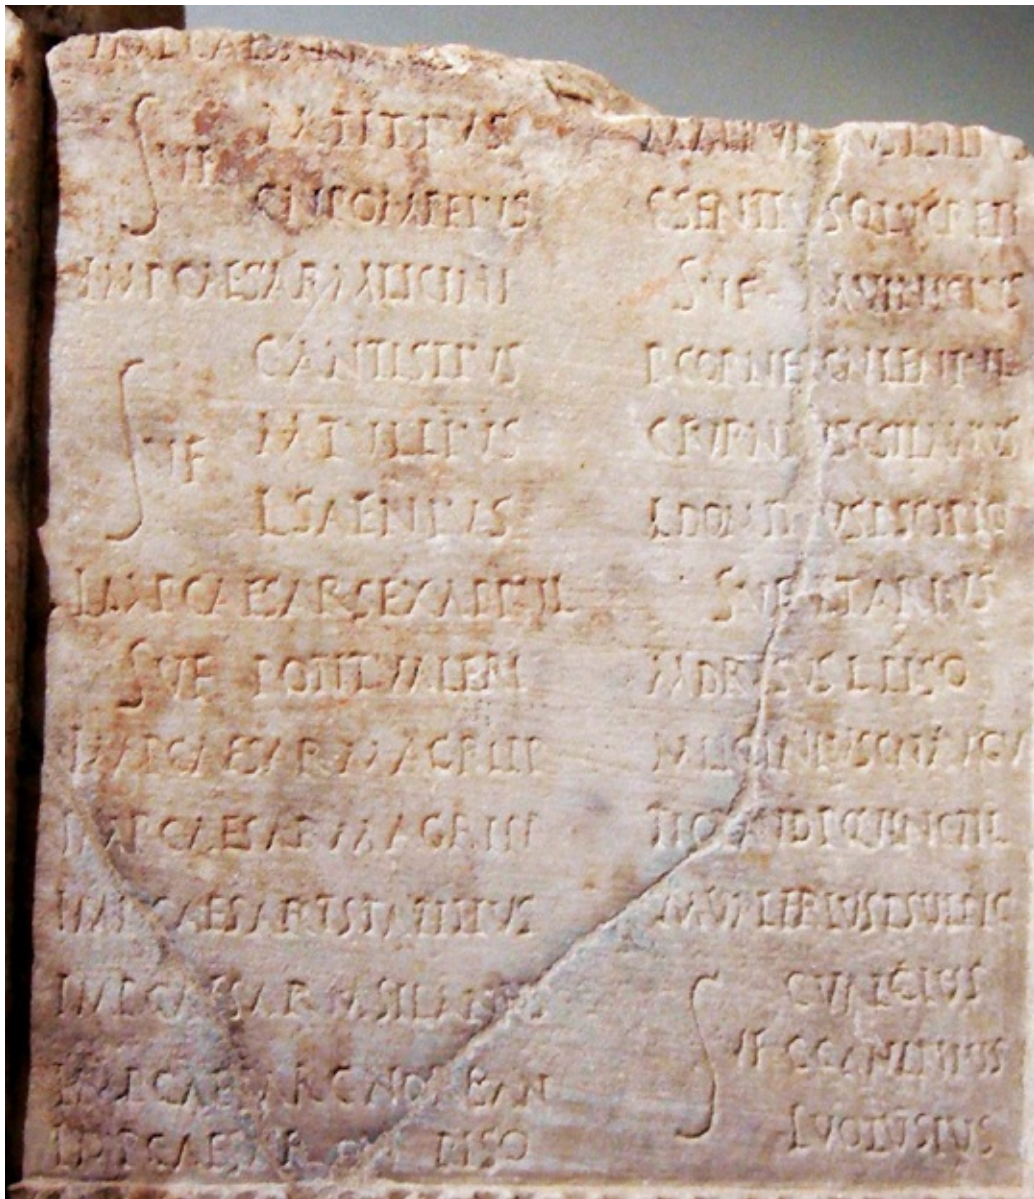 IMP CAES
M TITIVS
SVF
CN POMPEIVS
IMP CAESAR M LICINI
C ANTISTIVS
SVF M TVLLIVS
L SAENIVS
IMP CAESAR SEX APPVL
SVF POTIT VALERI
IMP CAESAR M AGRIPP
IMP CAESAR M AGRIPP
IMP CAESAR T STATILIVS
IMP CAESAR M SILANVS
IMP CAESAR C NORBAN
IMP CAESAR CN PISO
SILIVS
C SENTIVS Q LVCRETI
SVF M VINICIVS
P CORNE CN LENTVL
C FVRNIVS C SILANVS
L DOMITIVS P SCIPIO
SVF L TARIVS
M DRVSVS L PISO
M LICINIVS CN AVGV
TI CLAVD P QVINCTIL
M VALERIVS P SVLPIC
C VALGIVS
SVF C CANINIVS
L VOLVSIVS